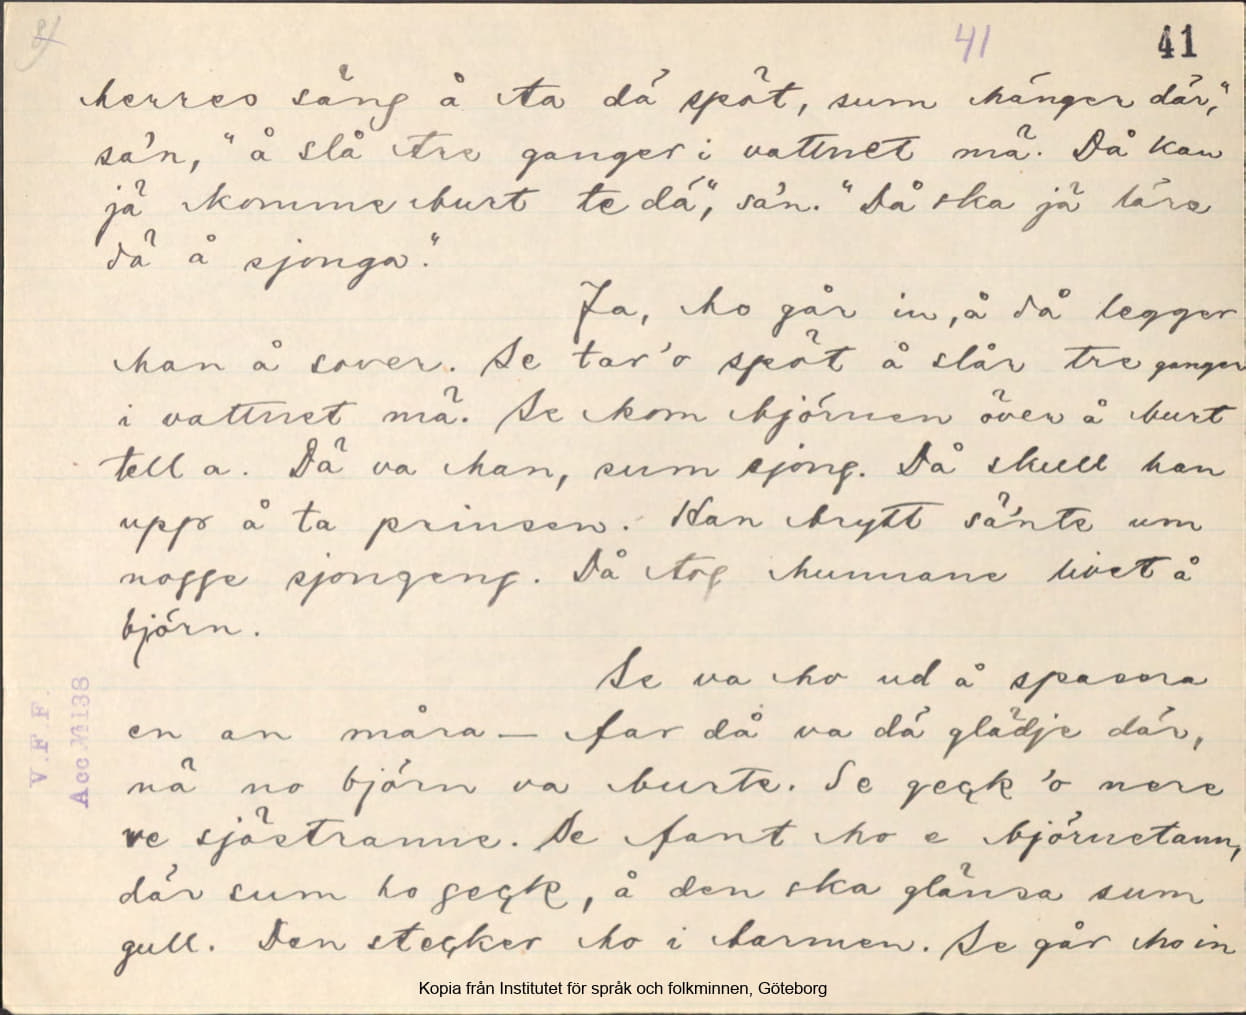 41 41
herres säng å ta dä spöt, sum hänger där,"
sa'n, "å slå tre ganger i vattnet mä. Då kan
jä komme burt te dä", sa'n. "Då ska jä läre
dä å sjonga."
Ja, ho går in, å då legger
han å sover. Se tar'o spöt å slår tre ganger
i vattnet mä. Se kom björnen över å burt
tell a. Dä va han, sum sjöng. Då skull han
upp å ta prinsen. Han brytt sä'nte um
nogge sjongeng. Då tog hunnane livet å
björn.
Se va ho ud å spasera
en an måra — far då va dä glädje där,
nä no björn va burte. Se geck 'o nere
ve sjöstranne. Se fant ho e björnetann,
där sum ho geck, å den ska glänsa sum
gull. Den stecker ho i barmen. Se går ho in
V.F.F.
Acc.№1138
Kopia från Institutet för språk och folkminnen, Göteborg